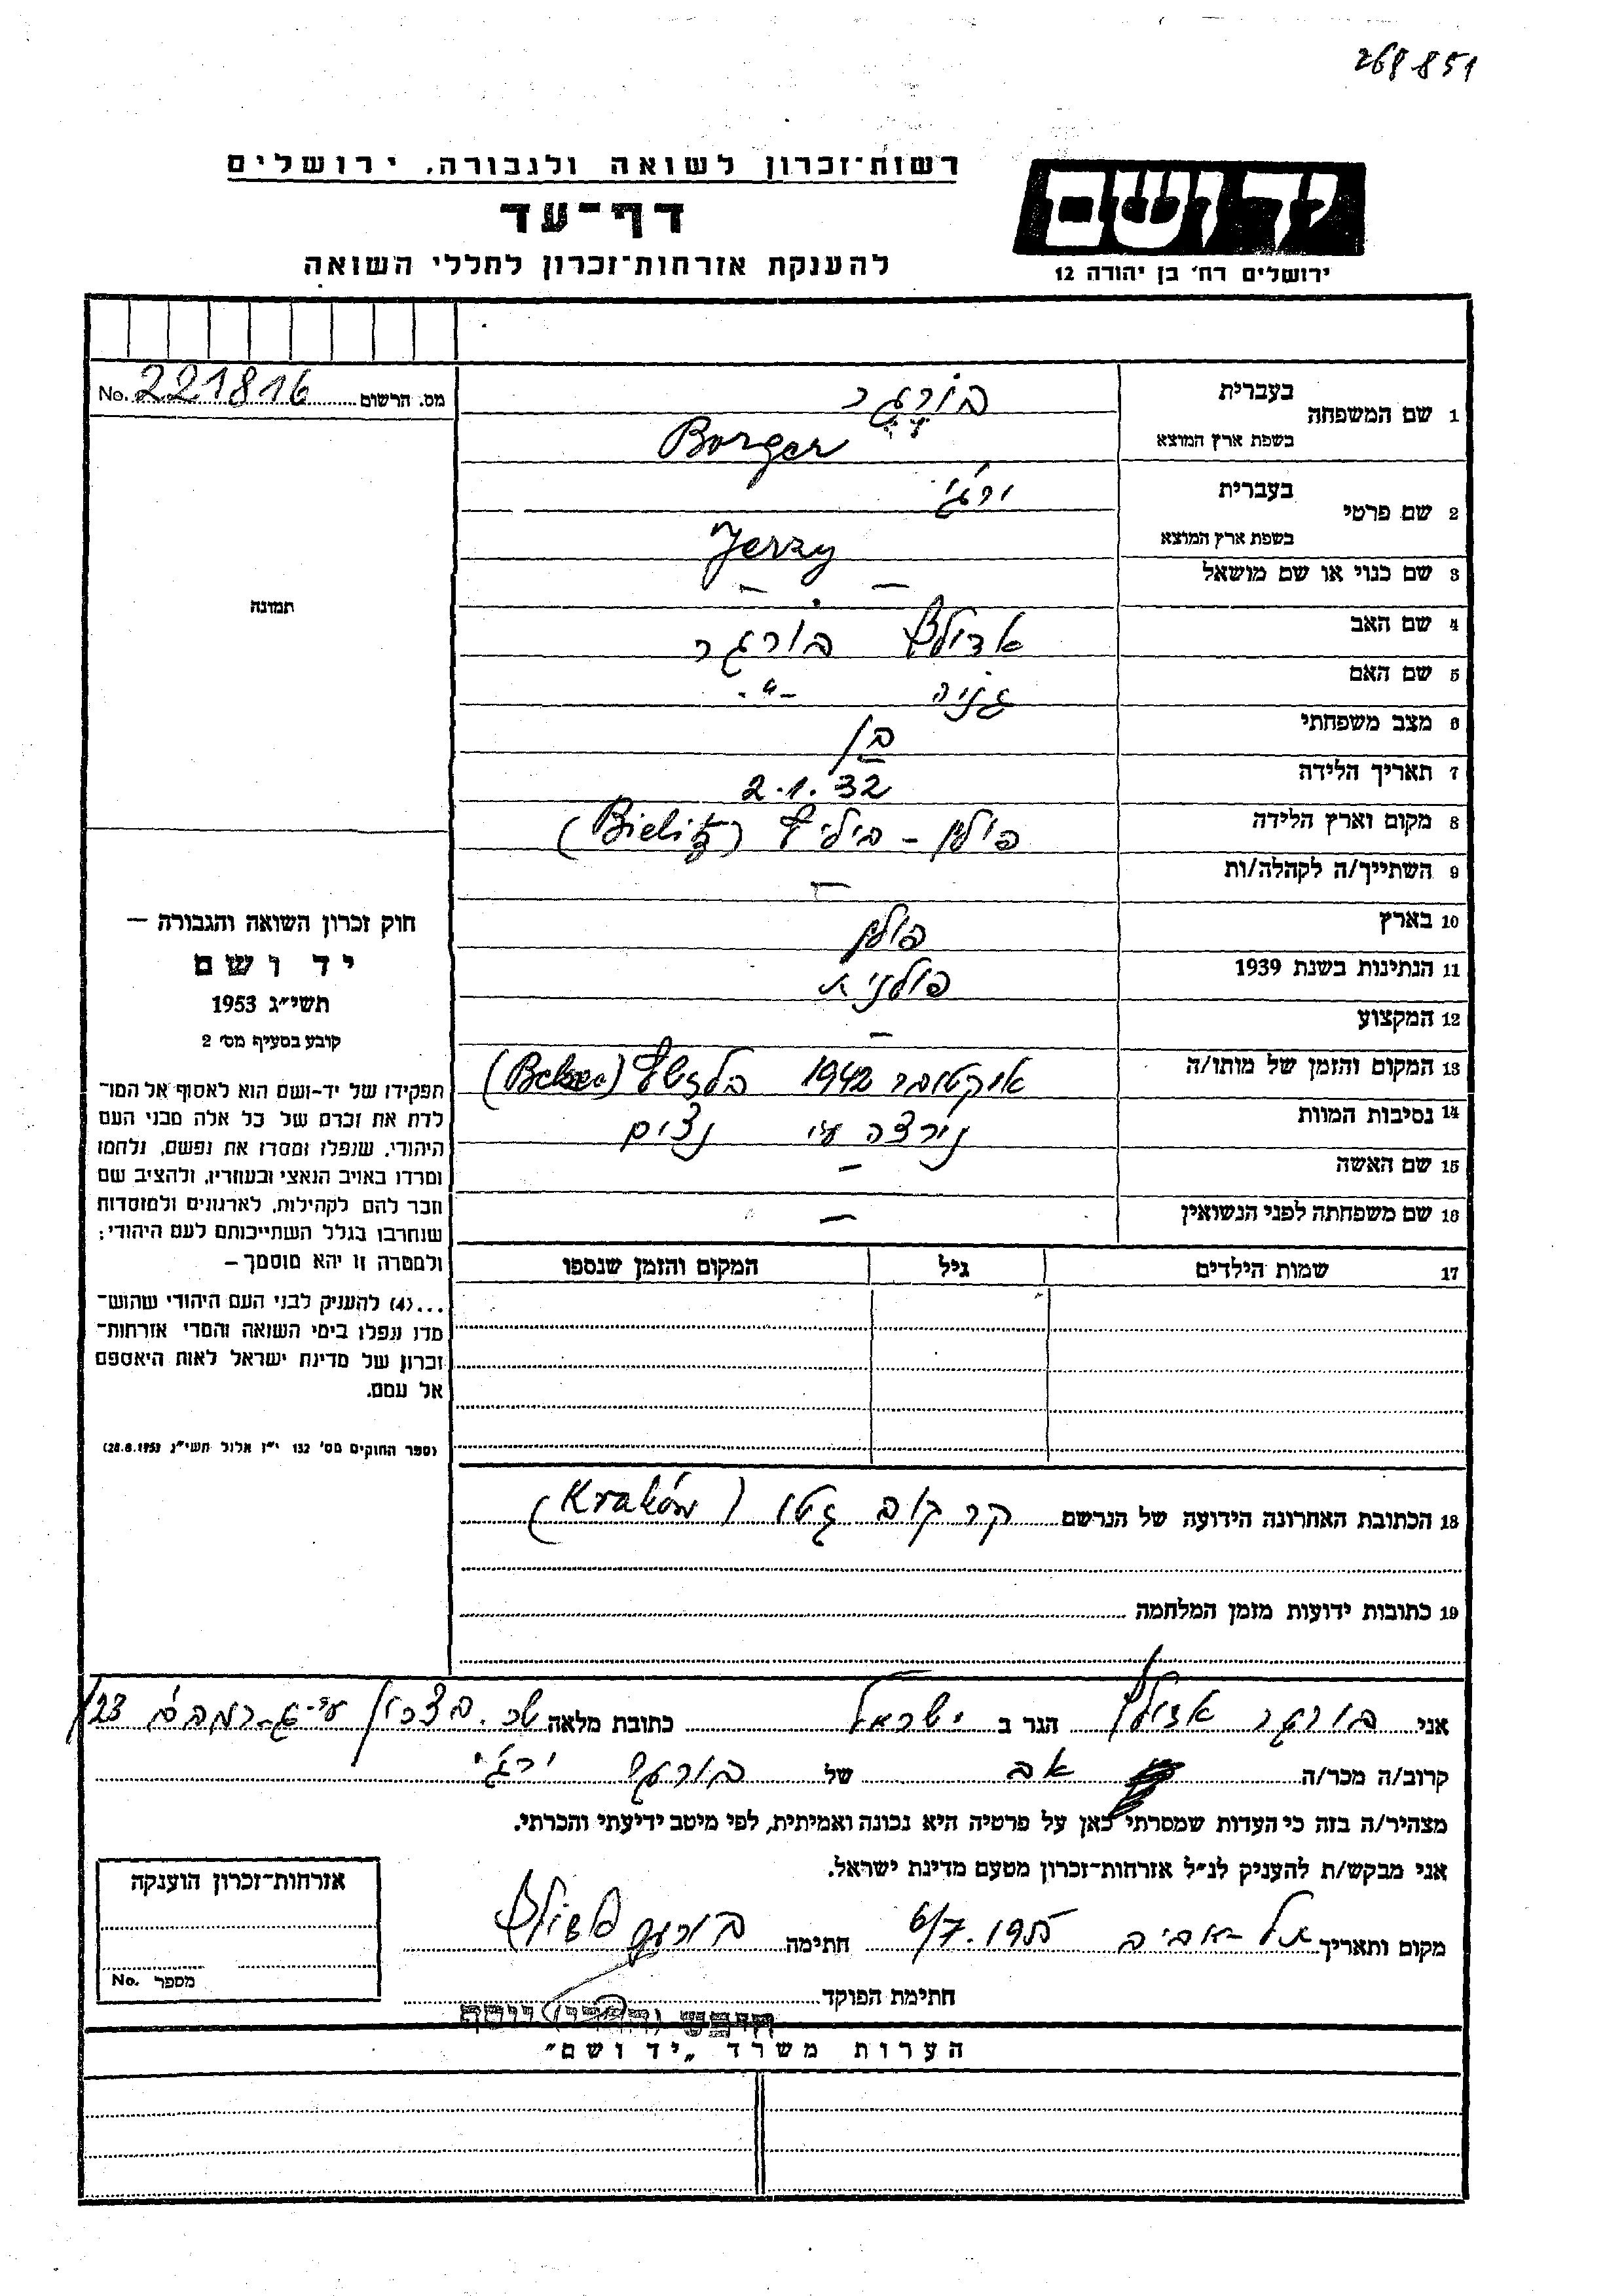 268851
רשות־זכרון לשואה ולגבורה, ירושלים
יד ושם
דף־עד
להענקת אזרחות־זכרון לחללי השואה
ירושלים רח' בן יהודה 12
מס. הרשום 221816 No.
1 שם המשפחה
בעברית בורגר
בשפת ארץ המוצא Borger
2 שם פרטי
בעברית ירז'י
בשפת ארץ המוצא Jerzy
3 שם כנוי או שם מושאל –
4 שם האב אדולף בורגר
5 שם האם גניה -"-
6 מצב משפחתי בן
7 תאריך הלידה 2.1.32
8 מקום וארץ הלידה פולין - ביליץ (Bielitz)
9 השתייך/ה לקהלה/ות –
10 בארץ פולין
11 הנתינות בשנת 1939 פולנית
12 המקצוע –
13 המקום והזמן של מותו/ה אוקטובר 1942
14 נסיבות המוות נירצח ע"י נצים
15 שם האשה –
16 שם משפחתה לפני הנשואין –
17 שמות הילדים גיל המקום והזמן שנספו
תמונה
חוק זכרון השואה והגבורה –
יד ושם
תשי"ג 1953
קובע בסעיף מס' 2
תפקידו של יד-ושם הוא לאסוף אל המו־
לדת את זכרם של כל אלה מבני העם
היהודי, שנפלו ומסרו את נפשם, נלחמו
ומרדו באויב הנאצי ובעוזריו, ולהציב שם
וזכר להם לקהילות, לארגונים ולמוסדות
שנחרבו בגלל השתייכותם לעם היהודי;
ולמטרה זו יהא מוסמך –
...(4) להעניק לבני העם היהודי שהוש־
מדו ונפלו בימי השואה והמרי אזרחות־
זכרון של מדינת ישראל לאות היאספם
אל עמם.
(ספר החוקים מס' 132 י"ז אלול תשי"ג 28.8.1953)
18 הכתובת האחרונה הידועה של הנרשם קרקוב גטו (Kraków)
19 כתובות ידועות מזמן המלחמה
אני בורגר אדולף הגר ב ישראל כתובת מלאה שכ. בצרון ע"י ת-א רמב"ם 23/
קרוב/ה מכר/ה אב של בורגר ירז'י
מצהיר/ה בזה כי העדות שמסרתי כאן על פרטיה היא נכונה ואמיתית, לפי מיטב ידיעתי והכרתי.
אני מבקש/ת להעניק לנ"ל אזרחות־זכרון מטעם מדינת ישראל.
מקום ותאריך תל-אביב 6/7.1955 חתימה בורגר אדולף
חתימת הפוקד
אזרחות־זכרון הוענקה
מספר No.
הערות משרד „יד ושם"